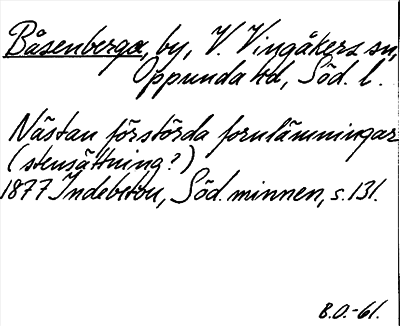 Båsenberga, by, V. Vingåkers sn,
Oppunda hd, Söd. l.
Nästan förstörda fornlämningar
(stensättning?)
1877 Indebetou, Söd. minnen, s. 131.
B.O.-61.